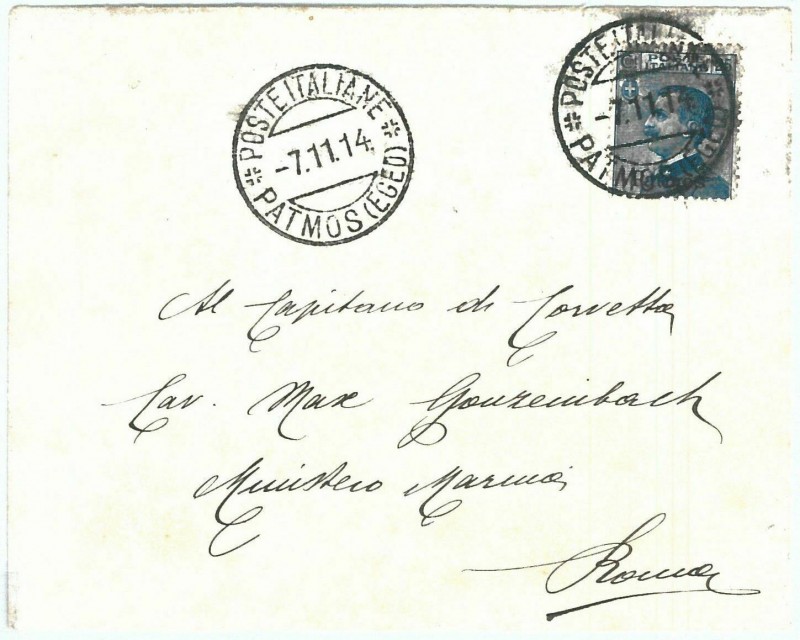 POSTE ITALIANE
-7.11.14
PATMOS (EGEO)
POSTE ITALIANE
-7.11.14
PATMOS (EGEO)
Al Capitano di Corvetta
Cav. Max Gonzenbach
Ministero Marina
Roma